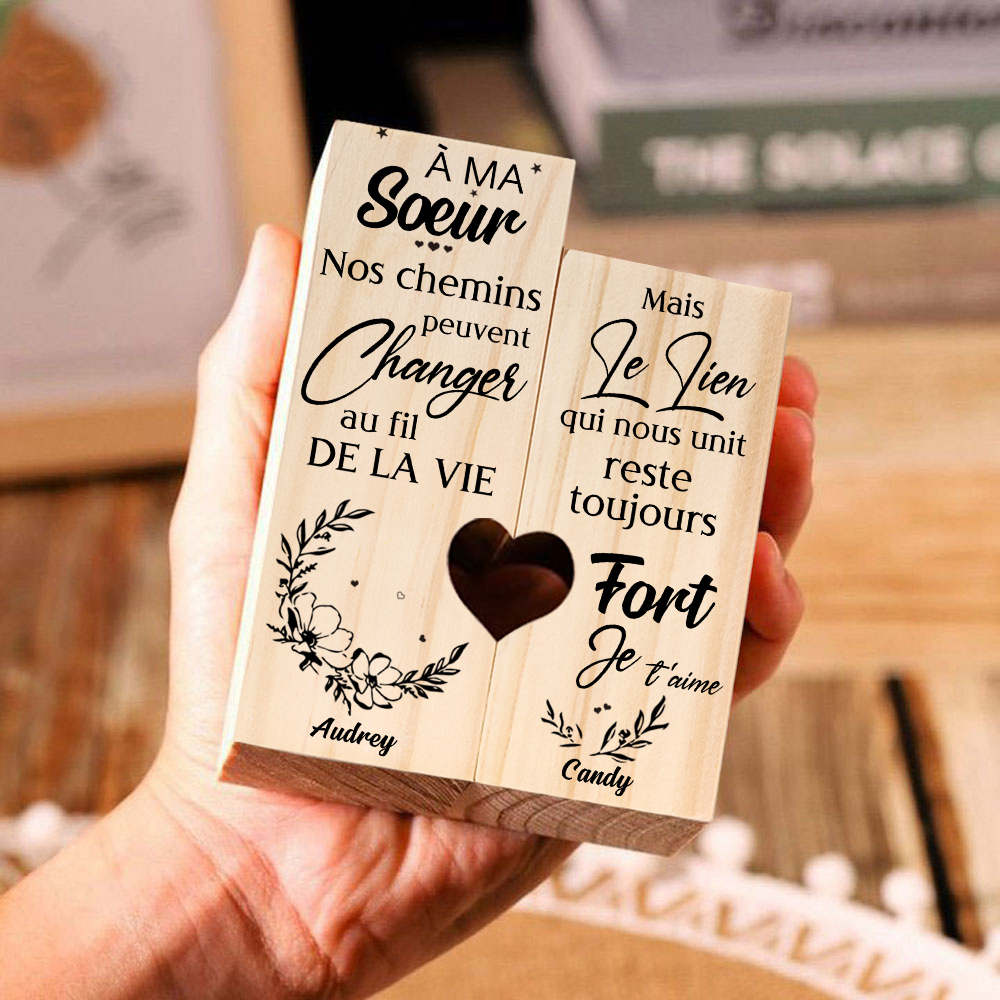 À MA
Soeur
Nos chemins
peuvent
Changer
au fil
DE LA VIE
Audrey
Mais
Le Lien
qui nous unit
reste
toujours
Fort
Je t'aime
Candy
THE SOLACE